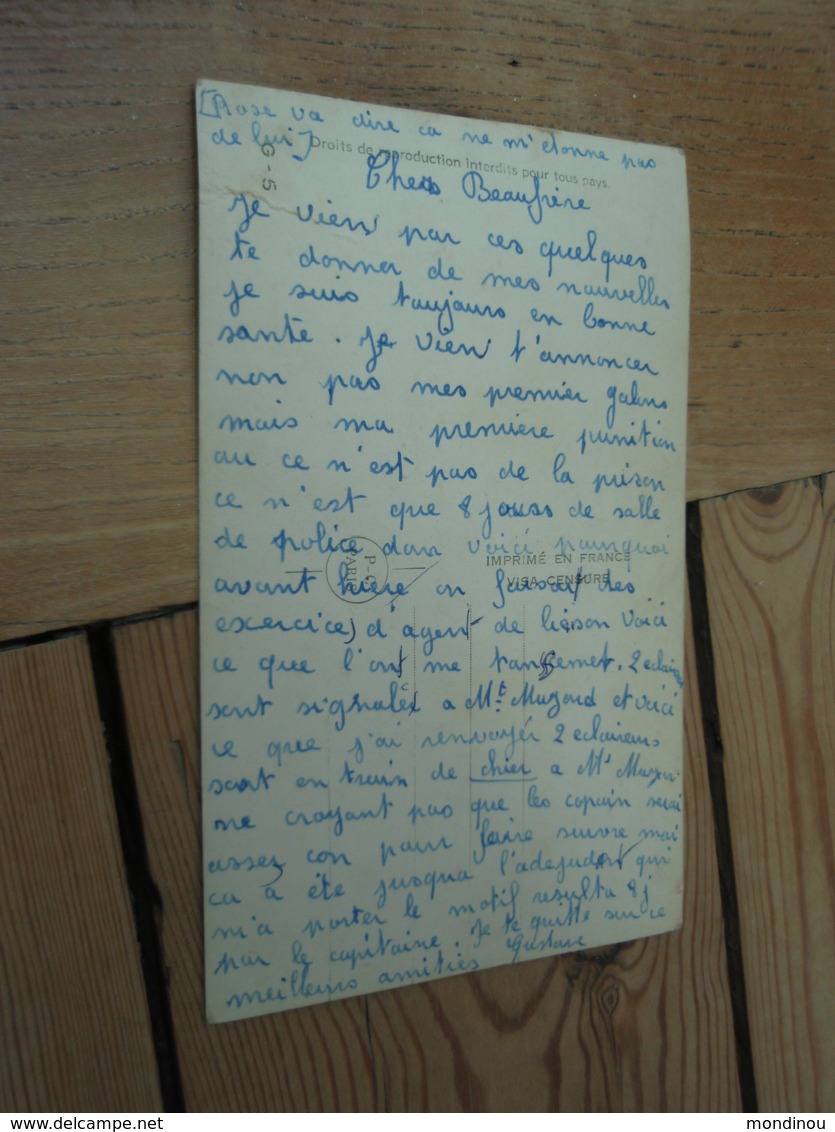 [Rose va dire ca ne m'etonne pas
de lui]
Droits de reproduction interdits pour tous pays.
G-5
Cher Beaufrère
Je viens par ces quelques
te donner de mes nouvelles
je suis toujours en bonne
sante. Je viens t'annoncer
non pas mes premier galons
mais ma première punition
au ce n'est pas de la prison
ce n'est que 8 jours de salle
de police dans voici pourquoi
P-C
PARIS
IMPRIMÉ EN FRANCE
VISA CENSURE
avant hiere on faisait des
exercices d'agent de liaison voici
ce que l'on me transmet. 2 eclaireurs
sont signalés a Mt Muzard et voici
ce que j'ai renvoyér 2 eclaireurs
sont en train de chier a Mt
ne croyant pas que les copain serai
assez con pour faire suivre mai
ca a éte jusqua l'adejudant qui
m'a porter le motif resulta 8 j
par le capitaine. Je te quitte sur ce
meilleurs amitiés Gustave
mondinou